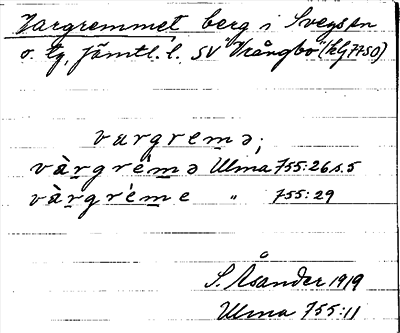 Vargremmet berg i Svegs sn
o. tg, Jämtl. l. SV Vrångbo (kG 7750)
vargremə;
vàrgrémə Ulma 755:26 s. 5
vàrgréme " 755:29
S. Åsander 1919
Ulma 755:11